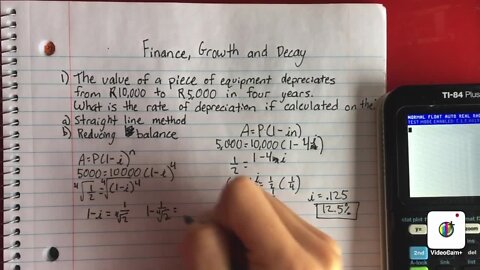 Finance, Growth and Decay
1) The value of a piece of equipment depreciates
from R10,000 to R5,000 in four years.
What is the rate of depreciation if calculated on the
a) Straight line method
b) Reducing balance
A=P(1-i)^n
5000=10000(1-i)^4
⁴√½=⁴√(1-i)^4
1-i=⁴√½ 1-⁴√½=
A=P(1-in)
5,000=10,000(1-4i)
½=1-4i
i=.125
12.5%
TI-84 Plus
NORMAL FLOAT AUTO REAL
VideoCam+